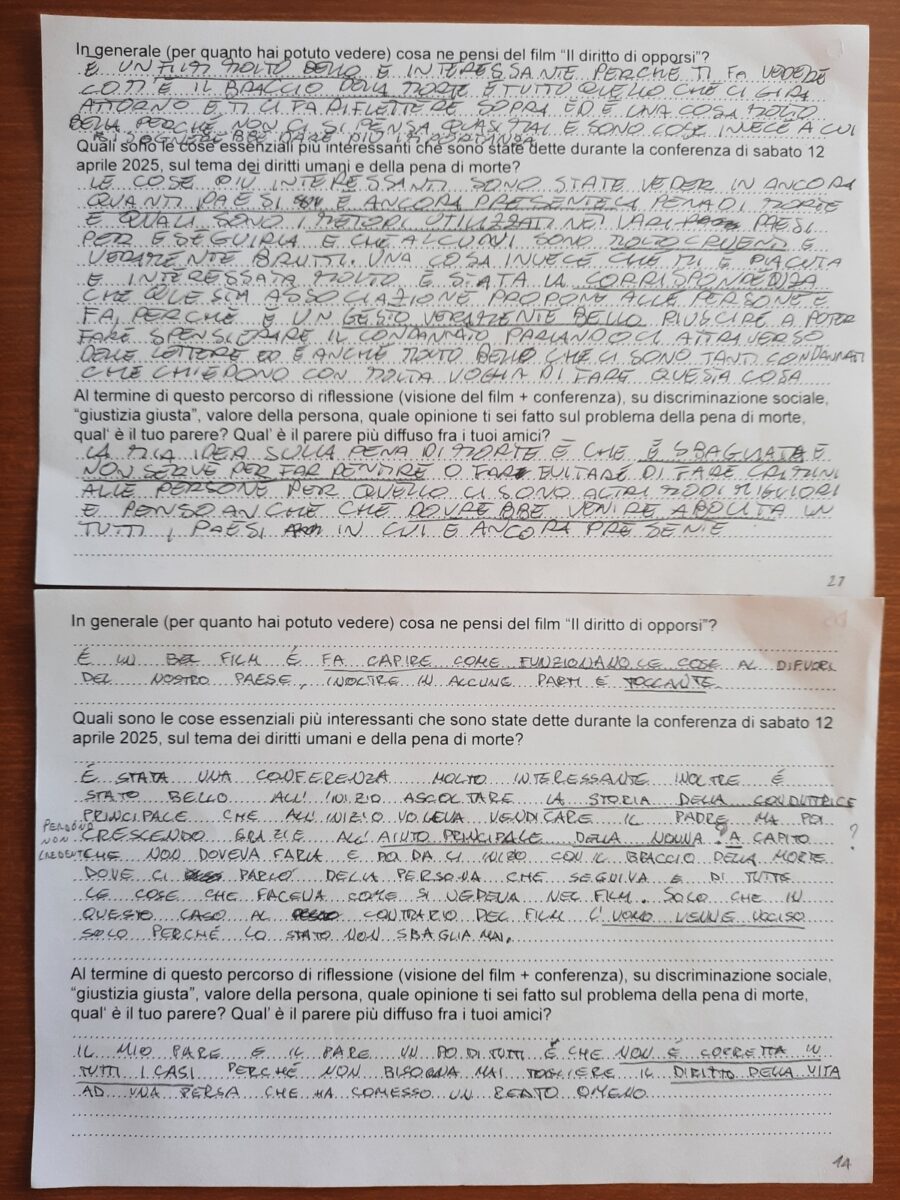 In generale (per quanto hai potuto vedere) cosa ne pensi del film “Il diritto di opporsi”?
E UN FILM MOLTO BELLO E INTERESSANTE PERCHE TI FA VEDERE
COM'È IL BRACCIO DELLA MORTE E TUTTO QUELLO CHE CI GIRA
ATTORNO E TI CI FA RIFLETTERE SOPRA ED È UNA COSA MOLTO
BELLA PERCHÉ NON CI SI PENSA QUASI MAI E SONO COSE INVECE A CUI
SI DOVREBBE DARE PIÙ IMPORTANZA
Quali sono le cose essenziali più interessanti che sono state dette durante la conferenza di sabato 12
aprile 2025, sul tema dei diritti umani e della pena di morte?
LE COSE PIÙ INTERESSANTI SONO STATE VEDER IN ANCORA
QUANTI PAESI È ANCORA PRESENTE LA PENA DI MORTE
E QUALI SONO I METODI UTILIZZATI NEI VARI PAESI
PER ESEGUIRLA E CHE ALCUNI SONO MOLTO CRUENTI E
VERAMENTE BRUTTI. UNA COSA INVECE CHE MI È PIACIUTA
E INTERESSATA MOLTO È STATA LA CORRISPONDENZA
CHE QUESTA ASSOCIAZIONE PROPONE ALLE PERSONE E
FA, PERCHE E UN GESTO VERAMENTE BELLO RIUSCIRE A POTER
FARE SPENSIERARE IL CONDANNATO PARLANDOCI ATTRAVERSO
DELLE LETTERE ED È ANCHE MOLTO BELLO CHE CI SONO TANTI CONDANNATI
CHE CHIEDONO CON MOLTA VOGLIA DI FARE QUESTA COSA
Al termine di questo percorso di riflessione (visione del film + conferenza), su discriminazione sociale,
“giustizia giusta”, valore della persona, quale opinione ti sei fatto sul problema della pena di morte,
qual’ è il tuo parere? Qual’ è il parere più diffuso fra i tuoi amici?
LA MIA IDEA SULLA PENA DI MORTE È CHE È SBAGLIATA E
NON SERVE PER FAR PENTIRE O FAR EVITARE DI FARE CRIMINI
ALLE PERSONE PER QUELLO CI SONO ALTRI MODI MIGLIORI
E PENSO ANCHE CHE DOVREBBE VENIRE ABOLITA IN
TUTTI I PAESI IN CUI E ANCORA PRESENTE
27
In generale (per quanto hai potuto vedere) cosa ne pensi del film “Il diritto di opporsi”?
É UN BEL FILM É FA CAPIRE COME FUNZIONANO LE COSE AL DIFUORI
DEL NOSTRO PAESE, INOLTRE IN ALCUNE PARTI È TOCCANTE.
Quali sono le cose essenziali più interessanti che sono state dette durante la conferenza di sabato 12
aprile 2025, sul tema dei diritti umani e della pena di morte?
É STATA UNA CONFERENZA MOLTO INTERESSANTE INOLTRE É
STATO BELLO ALL'INIZIO ASCOLTARE LA STORIA DELLA CONDUTTRICE
PRINCIPALE CHE ALL'INIZIO VOLEVA VENDICARE IL PADRE MA POI
PERDONO NON CREDENTE
CRESCENDO GRAZIE ALL'AIUTO PRINCIPALE DELLA NONNA ? A CAPITO ?
CHE NON DOVEVA FARLA E POI DA LI INIZIO CON IL BRACCIO DELLA MORTE
DOVE CI PARLÒ DELLA PERSONA CHE SEGUIVA E DI TUTTE
LE COSE CHE FACEVA COME SI VEDEVA NEL FILM. SOLO CHE IN
QUESTO CASO AL CONTRARIO DEL FILM L'UOMO VENNE UCCISO
SOLO PERCHÉ LO STATO NON SBAGLIA MAI.
Al termine di questo percorso di riflessione (visione del film + conferenza), su discriminazione sociale,
“giustizia giusta”, valore della persona, quale opinione ti sei fatto sul problema della pena di morte,
qual’ è il tuo parere? Qual’ è il parere più diffuso fra i tuoi amici?
IL MIO PARE E IL PARE UN PO DI TUTTI È CHE NON É CORRETTA IN
TUTTI I CASI PERCHÉ NON BISOGNA MAI TOGLIERE IL DIRITTO DELLA VITA
AD UNA PERSA CHE HA COMESSO UN REATO OMENO
14